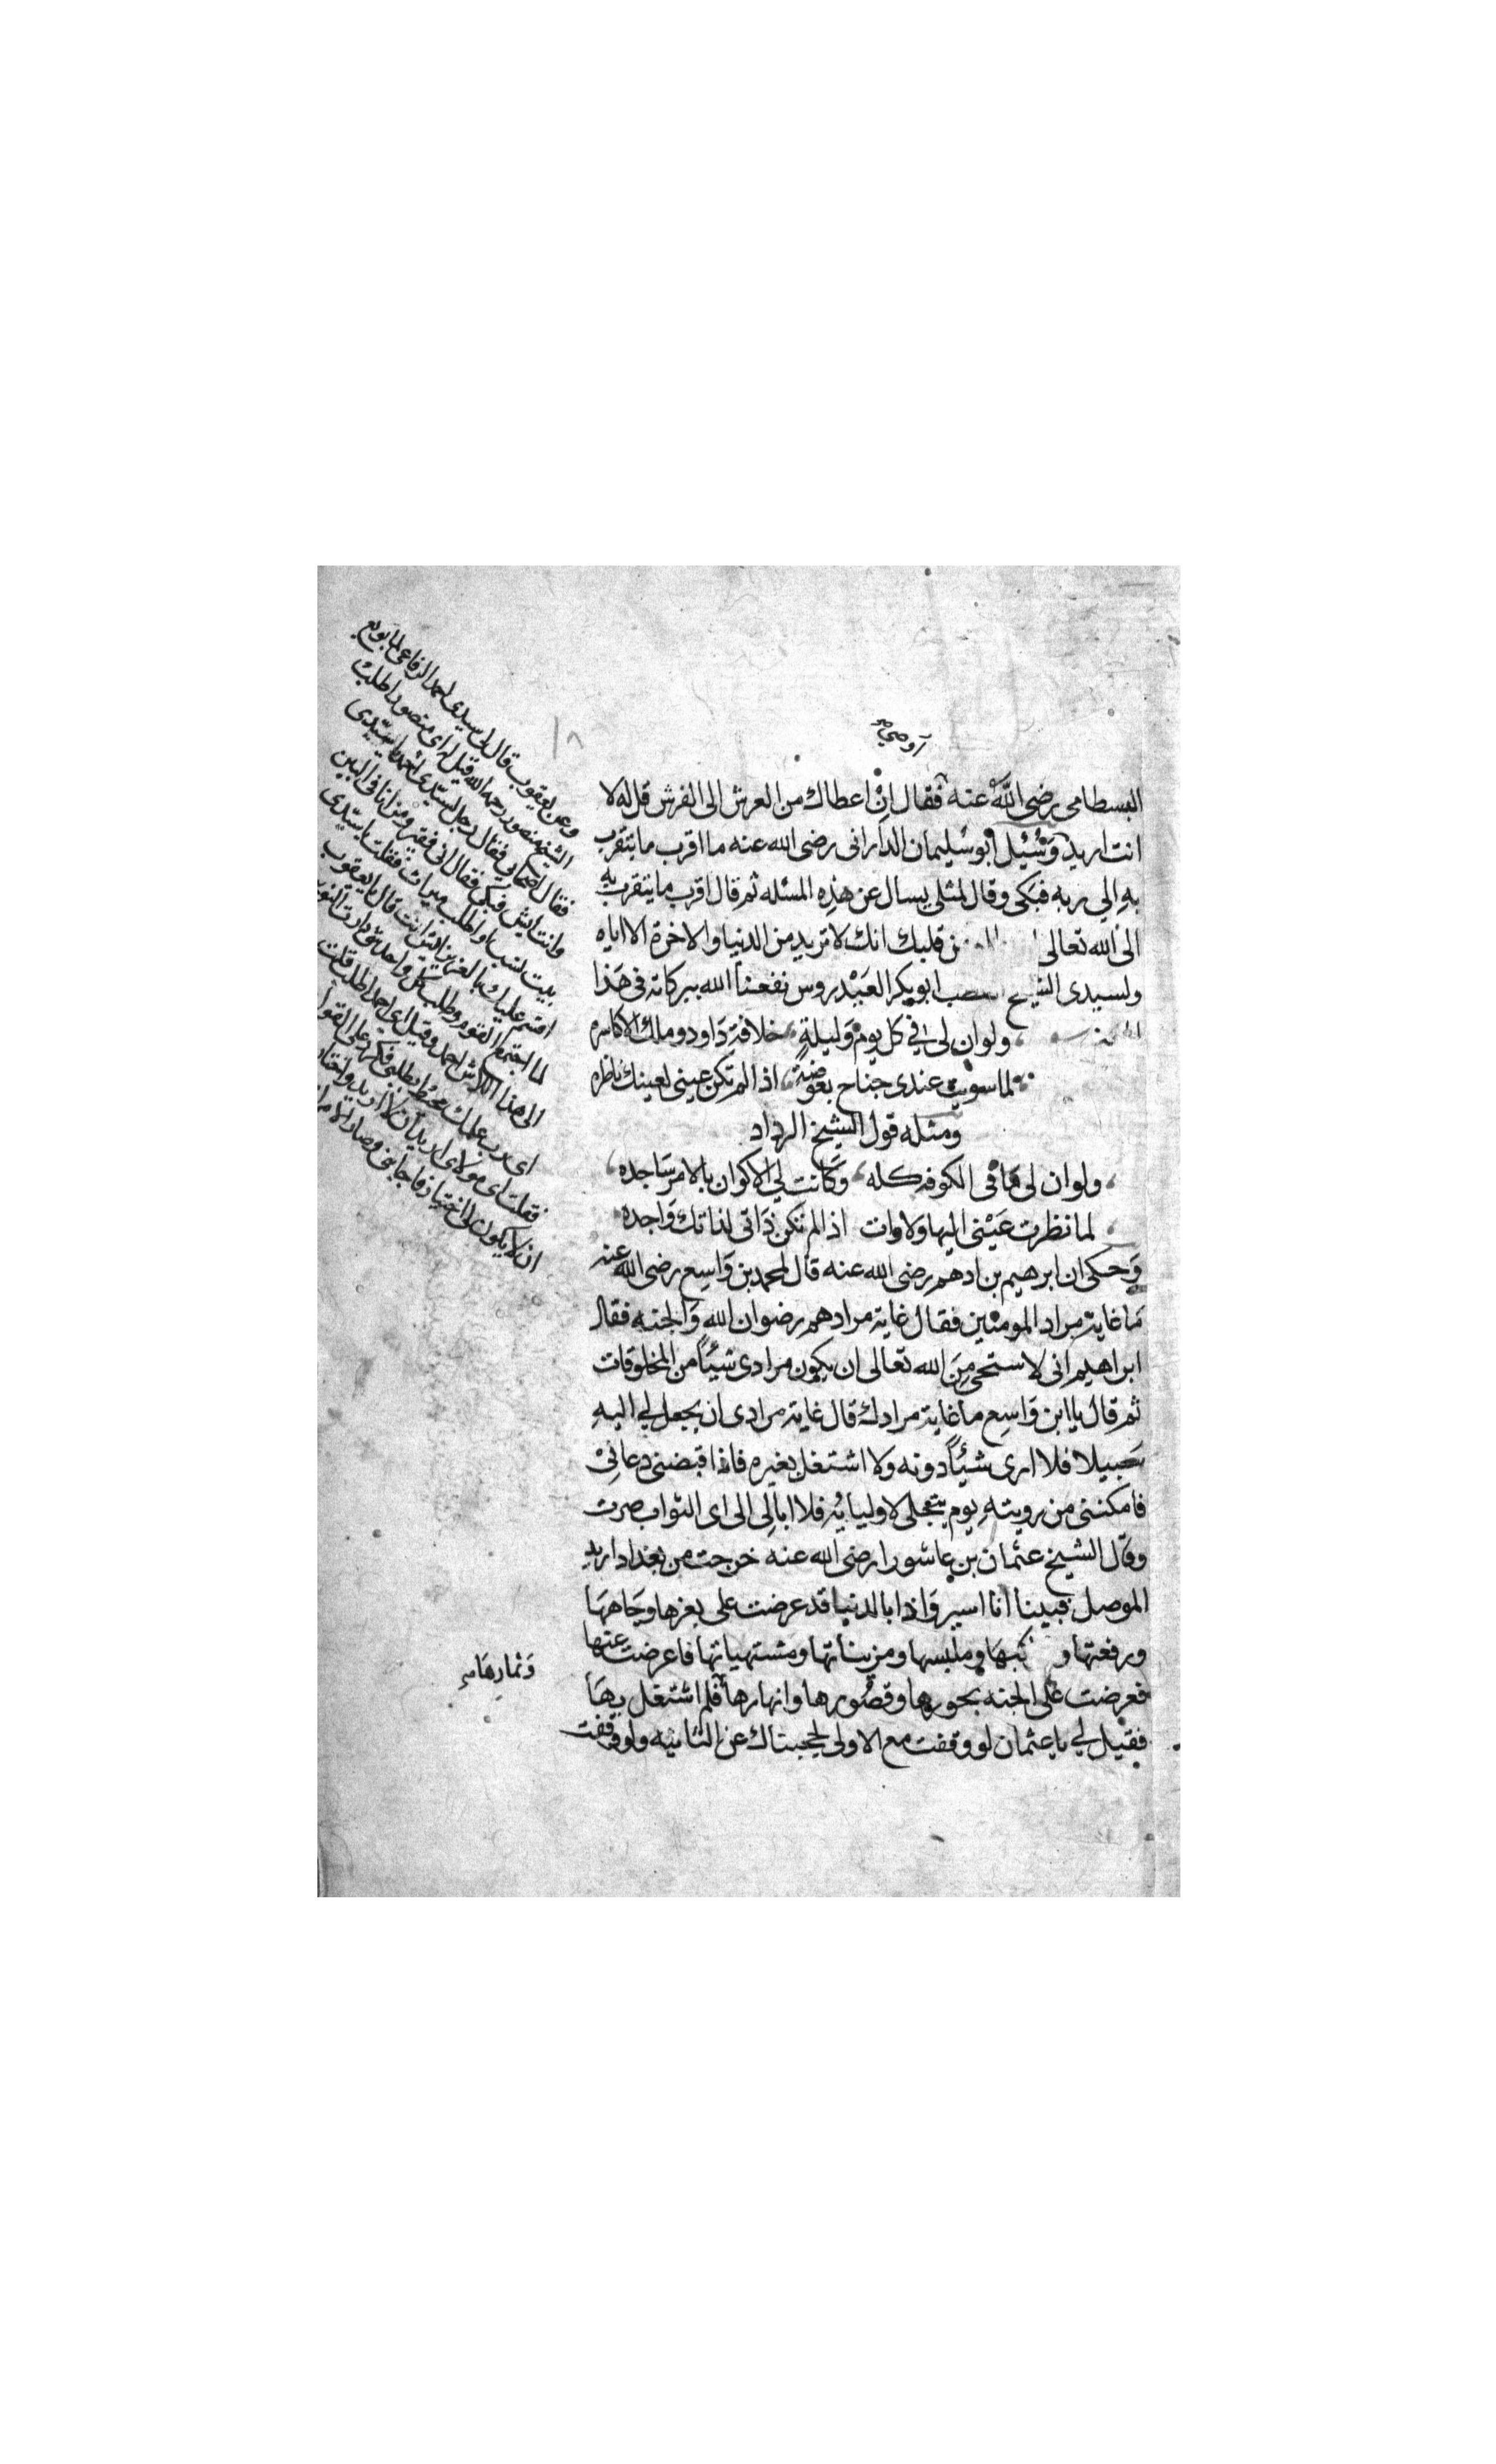 ١٨
أوحي
البسطامى رضى الله عنه فقال ان اعطاك من العرش الى الفرش قل له لا
انت اريد وسئيل ابو سليمان الدارانى رضى الله عنه ما اقرب ما يتقرب
به الى ربه فبكى وقال لمثلى يسال عن هذه المسئله ثم قال اقرب ما يتقرب به
الى الله تعالى من قلبك انك لا تريد من الدنيا والاخرة الا اياه
ولسيدى الشيخ ابو بكر العيدروس نفعنا الله ببركاته فى هذا
ولو ان لى فى كل يوم وليلة خلافة داود وملك الاكاسره
لما سويت عندى جناح بعوضة اذا لم تكن عينى لعينك ناظره
ومثله قول الشيخ الرداد
ولو ان لى مافى الكوفه كله وكانت لى الاكوان بالامر ساجده
لما نظرت عينى اليها ولا وات اذا لم تكن ذاتى لذاتك واجده
وحكى ان ابرهيم بن ادهم رضى الله عنه قال لمحمد بن واسع رضى الله عنه
ما غاية مراد المومنين فقال غاية مرادهم رضوان الله والجنه فقال
ابراهيم انى لاستحى من الله تعالى ان يكون مرادى شيئاً من المخلوقات
ثم قال يا ابن واسع ما غاية مرادك قال غاية مرادى ان يجعل لى اليه
سبيلا فلا ارى شيئاً دونه ولا اشتغل بغيره فاذا قبضنى دعانى
فامكننى من رويته يوم يتجلى لاوليايه فلا ابالى الى اى الثواب صرت
وقال الشيخ عثمان بن عاشورا رضى الله عنه خرجت من بغداد اريد
الموصل فبينا انا اسير واذا بالدنيا قد عرضت على بعزها وجاهها
ورفعتها و ملبسها ومزيناتها ومشتهياتها فاعرضت عنها
فعرضت على الجنه بحورها وقصورها وانهارها فلم اشتغل بها
فقيل لى يا عثمان لو وقفت مع الاولى لحجبتاك عن الثانيه ولو وقفت
وعن يعقوب قال لى سيدى احمد الرفاعى لما بويع
الشيخ منصور رحمه الله قيل له اى منصور اطلب
فقال اصحابى فقال رجل لسيدى احمد يا سيدى
وانت ايش فبكى فقال اى فقير ومن انا فى البين
بيت نسب واطلب ميراث فقلت يا سيدى
اقسم عليك بالعزيز ايش انت قال يا يعقوب
لما اجتمع القوم وطلب كل واحد شى دارت النوبه
الى هذا اللاش احمد وقيل اى احمد اطلب قلت
اى رب علمك محيط بطلبى فكرر على القول
فقلت اى مولاى اريد ان لا اريد واختار
ان لا يكون لى اختيار فاجابنى وصار الامر
وثمارها